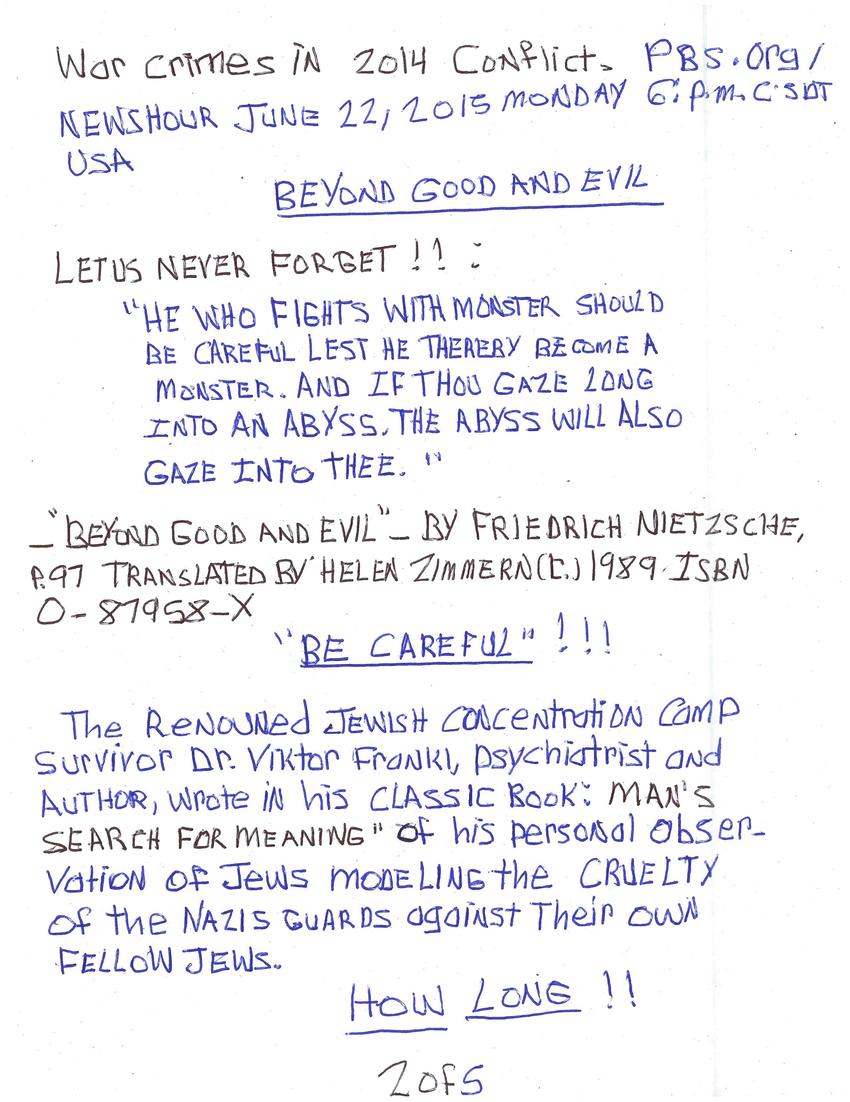 War crimes in 2014 Conflict. PBS.Org/
NEWSHOUR JUNE 22, 2015 MONDAY 6: p.m. C.SDT
USA
BEYOND GOOD AND EVIL
LET US NEVER FORGET !! :
"HE WHO FIGHTS WITH MONSTER SHOULD
BE CAREFUL LEST HE THEREBY BECOME A
MONSTER. AND IF THOU GAZE LONG
INTO AN ABYSS, THE ABYSS WILL ALSO
GAZE INTO THEE. "
_"BEYOND GOOD AND EVIL"_ BY FRIEDRICH NIETZSCHE,
P.97 TRANSLATED BY HELEN ZIMMERN (t.) 1989. ISBN
0-87958-X
"BE CAREFUL" !!!
The RENOUNED JEWISH CONCENtrAtiON CAMP
Survivor Dr. Viktor Frankl, psychiatrist and
AUTHOR, wrote in his CLASSIC Book: MAN'S
SEARCH FOR MEANING" of his personal obser-
vation of Jews MODELING the CRUELTY
of the NAZIS GUARDS against Their own
FELLOW JEWS.
HOW LONG !!
2 of 5